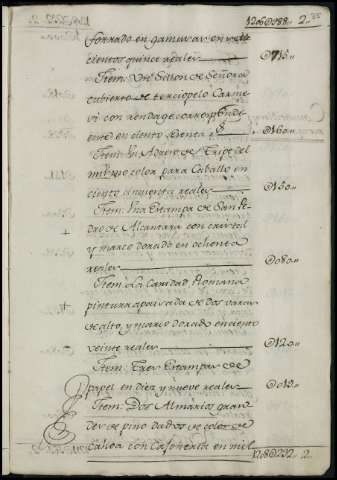 1206@988.. 2.
forrado en gamuza en sette
cientos quince reales @715..
Ittem: Un Sillon de Señora
cubierto de terciopelo Carme
si con
ente en ciento sesenta @160..
Ittem: Un Adrezo de Tripe del
mismo color para Caballo en
ciento cinquenta reales @150..
Ittem: Una Estampa de San Pe
dro de Alcantara con cristal
y marco dorado en ochenta
reales @080..
Ittem: La Caridad Romana
pintura apaisada de dos varas
de alto, y marco dorado en ciento
veinte reales @120..
Ittem: Tres Estampas de
papel en diez y nueve reales @019..
Ittem: Dos Almarios gran
des de pino dados de color de
caoba con Cajoneria en mil
1208@232.. 2.